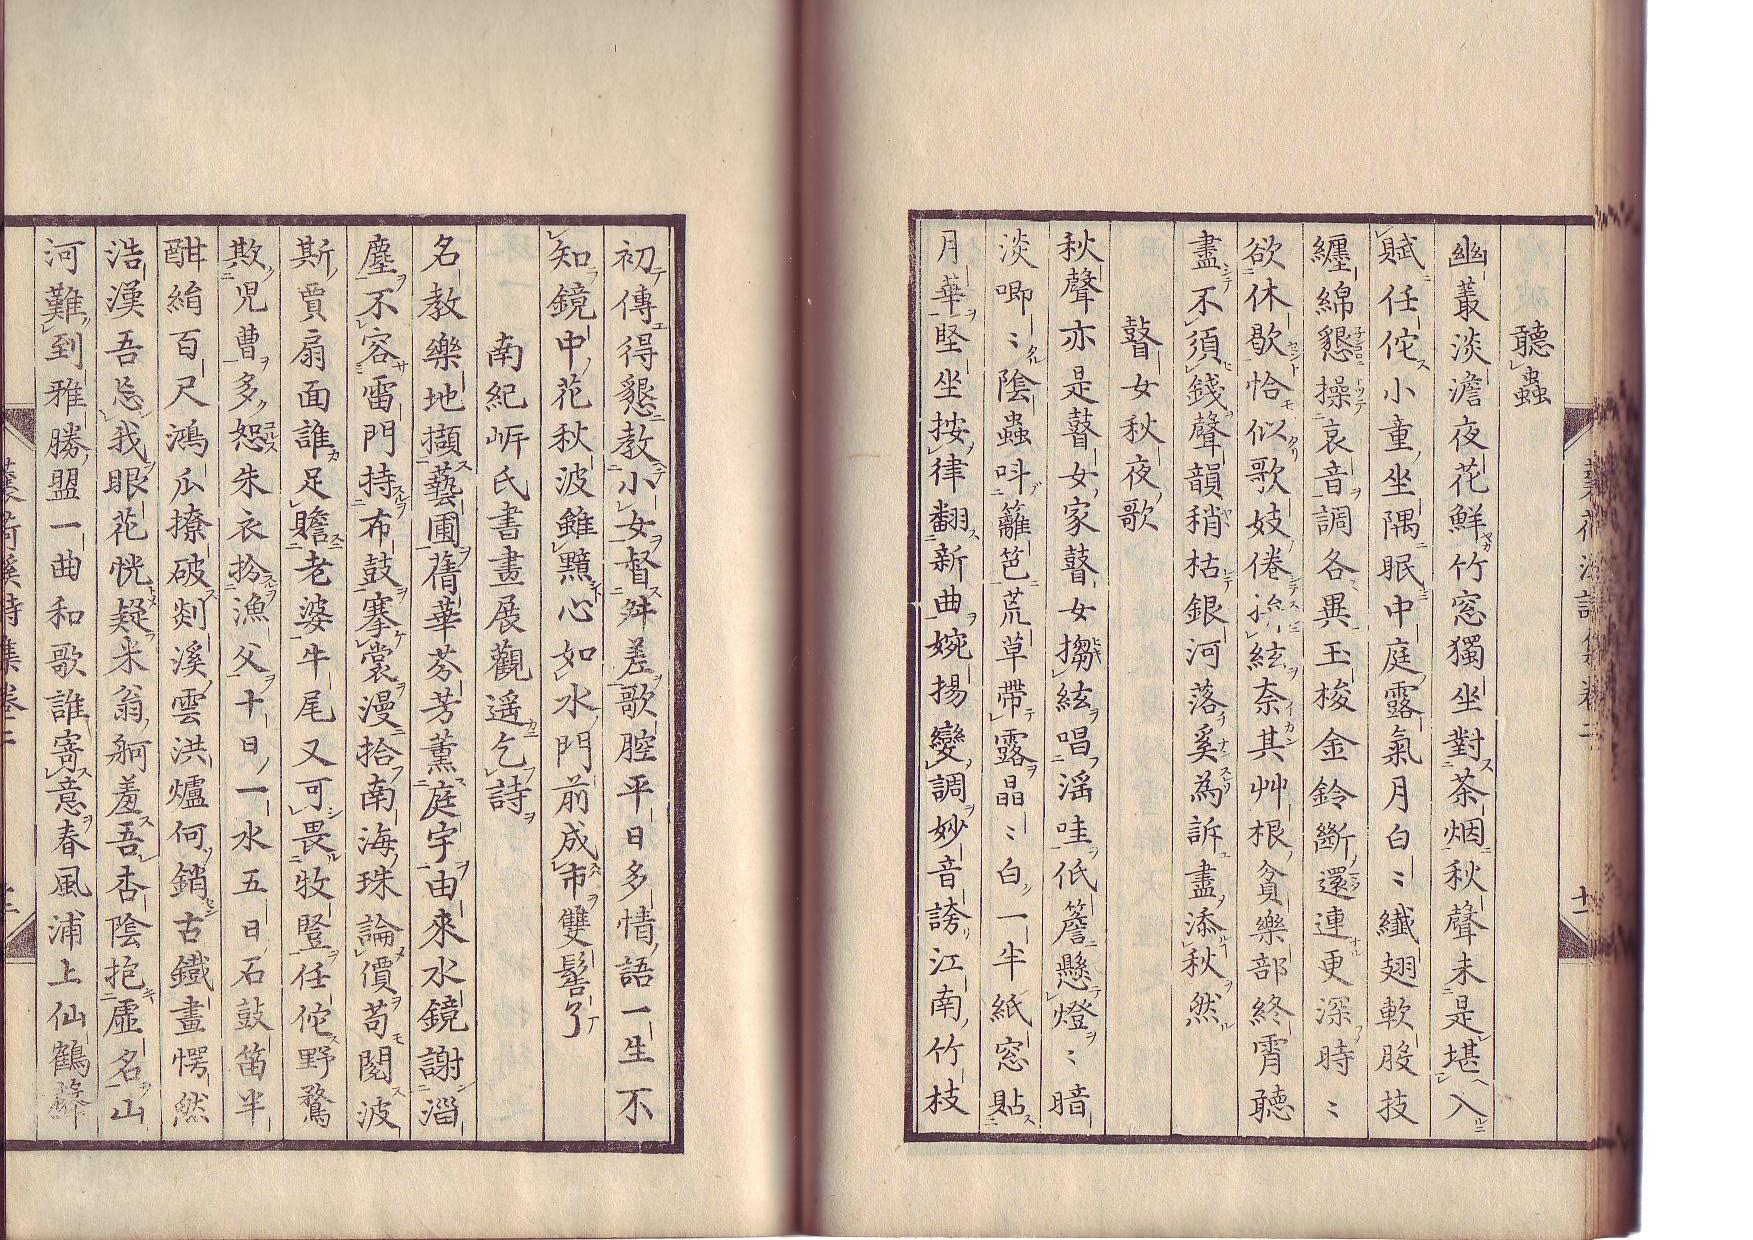 聽蟲
幽叢淡澹夜花鮮竹窓獨坐對茶烟秋聲未是堪入
賦任佗小童坐隅眠中庭露氣月白〻纎翅軟股技
纏綿懇操哀音調各異玉梭金鈴斷還連更深時〻
欲休歇恰似歌妓倦絃奈其艸根貧樂部終霄聽
盡不須錢聲韻稍枯銀河落奚為訴盡添秋然
瞽女秋夜歌
秋聲亦是瞽女家瞽女搊絃唱滛哇低簷懸燈〻暗
淡唧〻陰蟲呌籬笆荒草帶露晶〻白一半紙窓貼
月華堅坐按律翻新曲婉揚變調妙音誇江南竹枝
初傳得懇教小女督舛差歌腔平日多情語一生不
知鏡中花秋波雖黯心如水門前成市雙髻了
南紀岓氏書畫展觀遥乞詩
名教樂地擷藝圃蓿華芬芳薰庭宇由來水鏡謝淄
塵不容雷門持布鼓搴裳漫拾南海珠論價苟閱波
斯賈扇面誰足贍老婆牛尾又可畏牧豎任佗野鶩
欺児曹多恕朱衣扮漁父十日一水五日石鼓笛半
酣絹百尺鴻爪撩破剡溪雲洪爐何銷古鐵畫愕然
浩漢吾忘我眼花恍疑米翁舸羞吾杏陰抱虛名山
河難到雅勝盟一曲和歌誰寄意春風浦上仙鶴